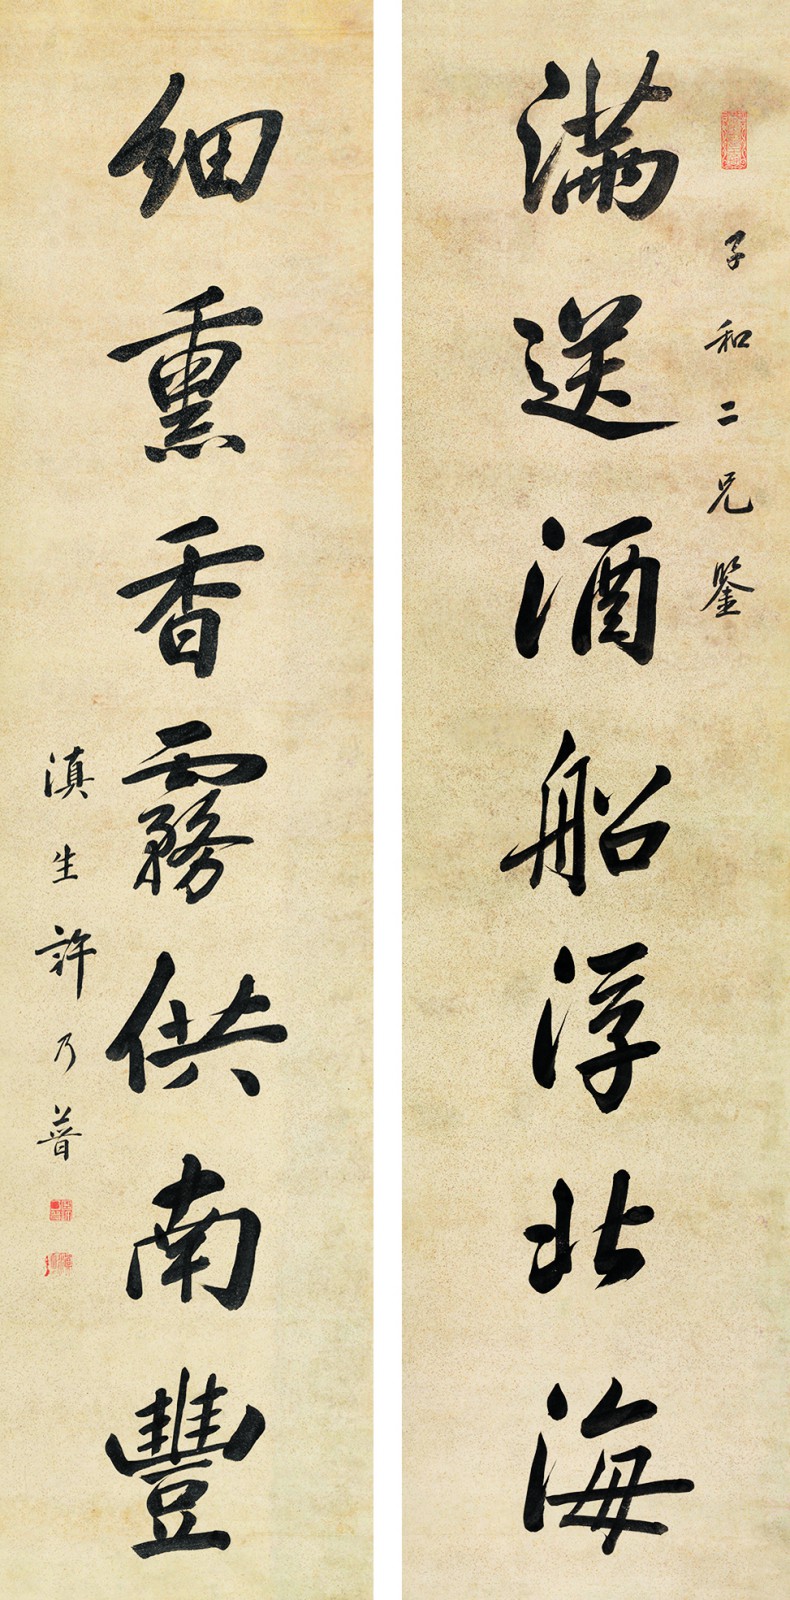 子和二兄鉴
满送酒船浮北海
细熏香霧供南豐
滇生許乃普